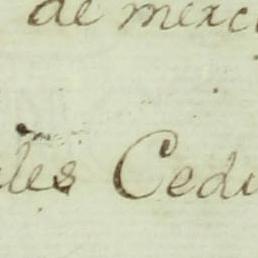 de merc
les Cedu